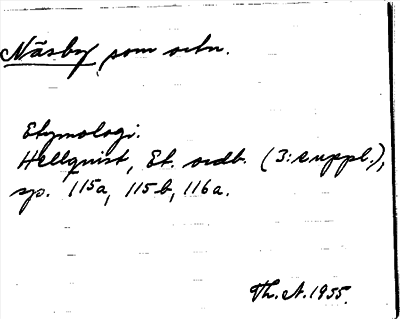 Näsby som ortn.
Etymologi.
Hellquist, Et. ordb. (3: suppl.),
sp. 115a, 115b, 116a.
Th. A. 1955.